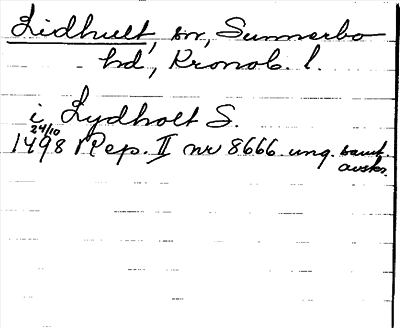 Lidhult, sn, Sunnerbo
hd, Kronob. l.
i Lydholt S.
24/10
1498 Rep. II nr 8666 ung. samt.
avskr.